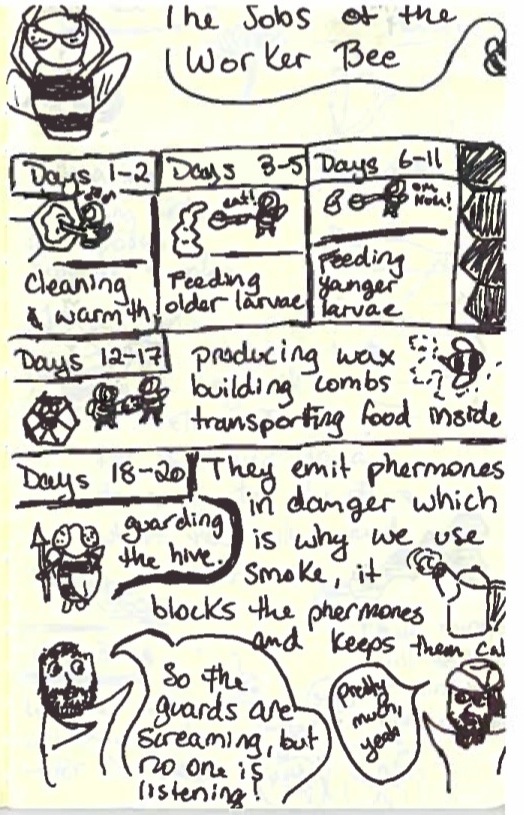 The Jobs of the
Worker Bee
Days 1-2
Days 3-5
Days 6-11
eat!
om
Nom!
Cleaning
& warmth
Feeding
older larvae
Feeding
yanger
larvae
Days 12-17
producing wax
building combs
transporting food inside
Days 18-20
guarding
the hive.
They emit phermones
in danger which
is why we use
smoke, it
blocks the phermones
and keeps them cal
So the
guards are
screaming, but
no one is
listening!
pretty
much,
yeah